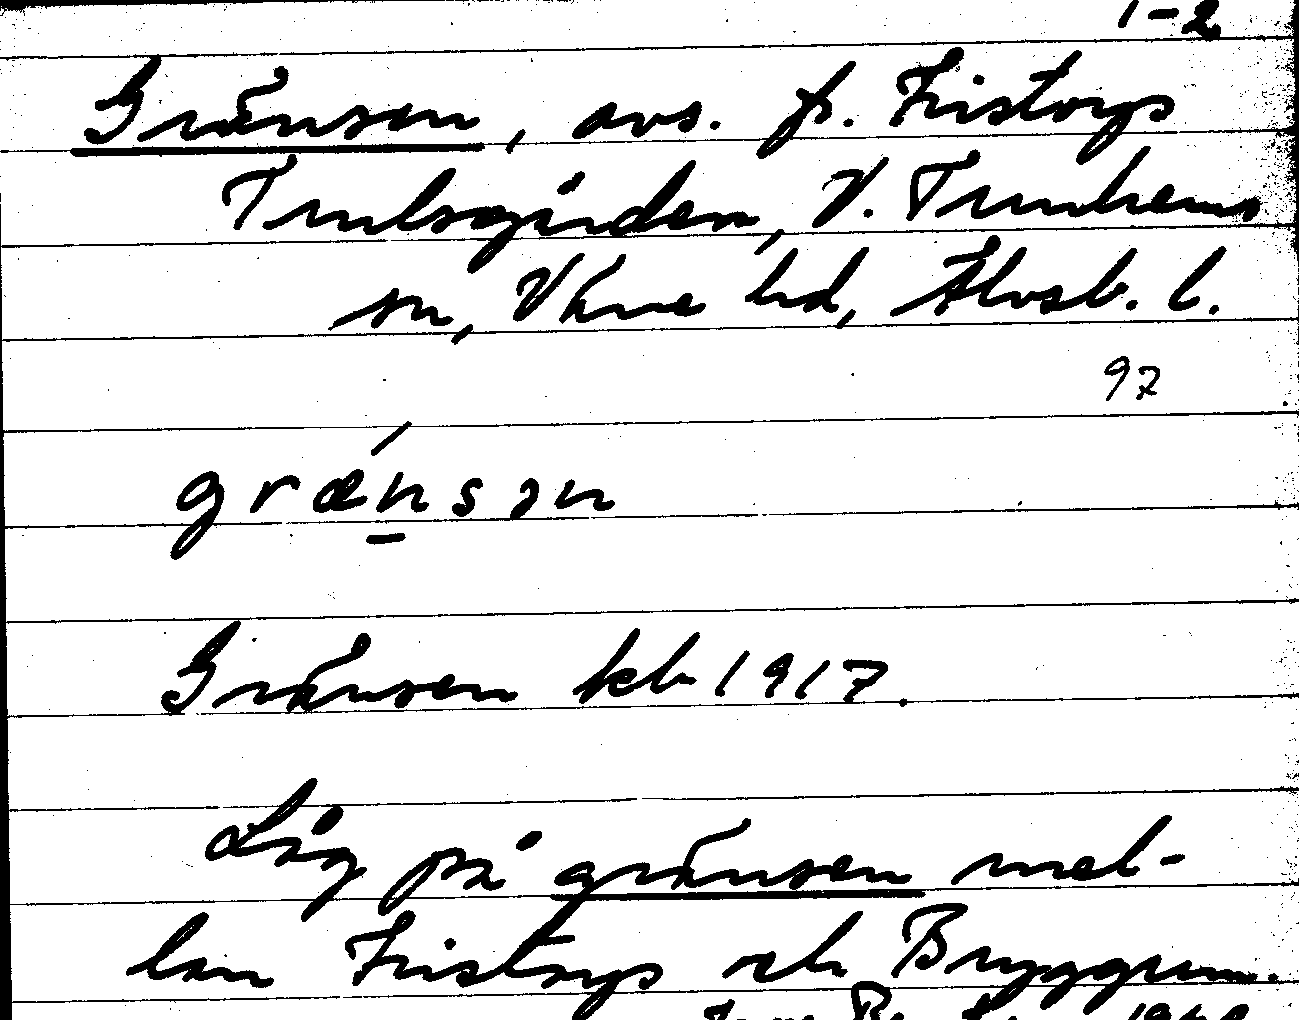 1-2
Gränsen, avs. fr. Fristorps
Trulsgården, V. Trunhems
sn, Väne hd, Älvsb. l.
97
grænsən
Gränsen kb 1917.
Låg på gränsen mel-
lan Fristorps och Bryggum.